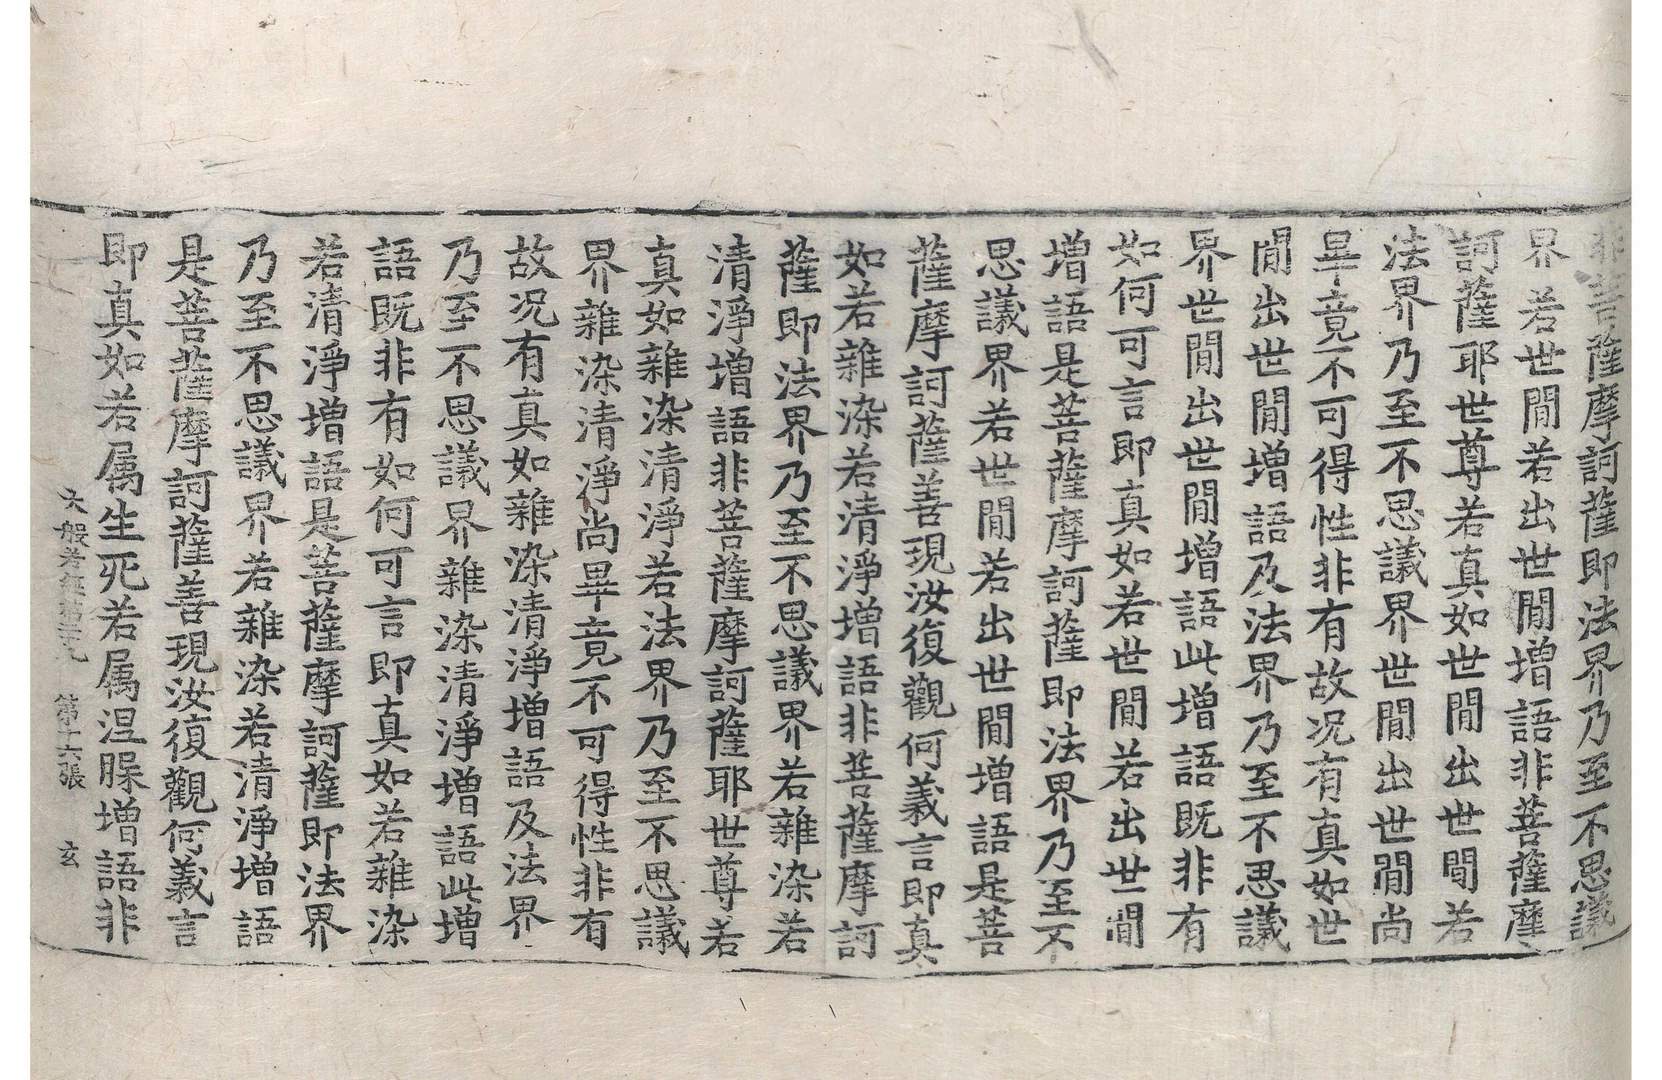 非菩薩摩訶薩即法界乃至不思議
界若世閒若出世閒增語非菩薩摩
訶薩耶世尊若真如世閒出世閒若
法界乃至不思議界世閒出世閒尚
畢竟不可得性非有故况有真如世
閒出世閒增語及法界乃至不思議
界世閒出世閒增語此增語既非有
如何可言即真如若世閒若出世閒
增語是菩薩摩訶薩即法界乃至不
思議界若世閒若出世閒增語是菩
薩摩訶薩善現汝復觀何義言即真
如若雜染若清淨增語非菩薩摩訶
薩即法界乃至不思議界若雜染若
清淨增語非菩薩摩訶薩耶世尊若
真如雜染清淨若法界乃至不思議
界雜染清淨尚畢竟不可得性非有
故况有真如雜染清淨增語及法界
乃至不思議界雜染清淨增語此增
語既非有如何可言即真如若雜染
若清淨增語是菩薩摩訶薩即法界
乃至不思議界若雜染若清淨增語
是菩薩摩訶薩善現汝復觀何義言
即真如若属生死若属涅槃增語非
大般若 第十六張 玄